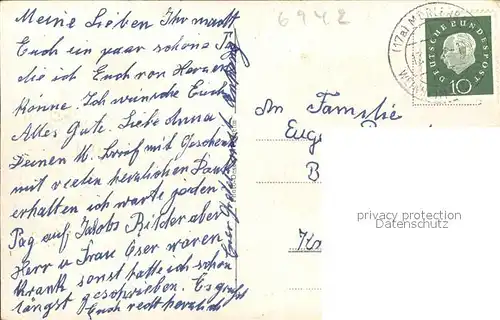 6942
Meine Lieben Ihr macht
Euch ein paar schöne Tag
die ich Euch von Herzen
Könne. Ich wünsche Euch
Alles Gute. Liebe Anna
Deinen lb. Brief mit Geschenk
mit vielen herzlichen Dank
erhalten ich warte jeden
Tag auf Jakobs Bilder aber
Herr u Frau Oser waren
krank sonst hätte ich schon
längst geschrieben. Es grüsst
Euch recht herzlich
An Familie
Euge
B
(17a)
DEUTSCHE BUNDESPOST
10
privacy protection
Datenschutz